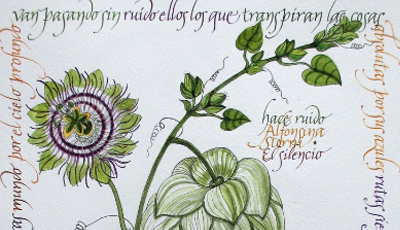 mundo por el cielo profundo
van pasando sin ruido ellos los que transpiran las cosas
absolutas por sus azules rutas sie
hace ruido
Alfonsina
Storni
El silencio